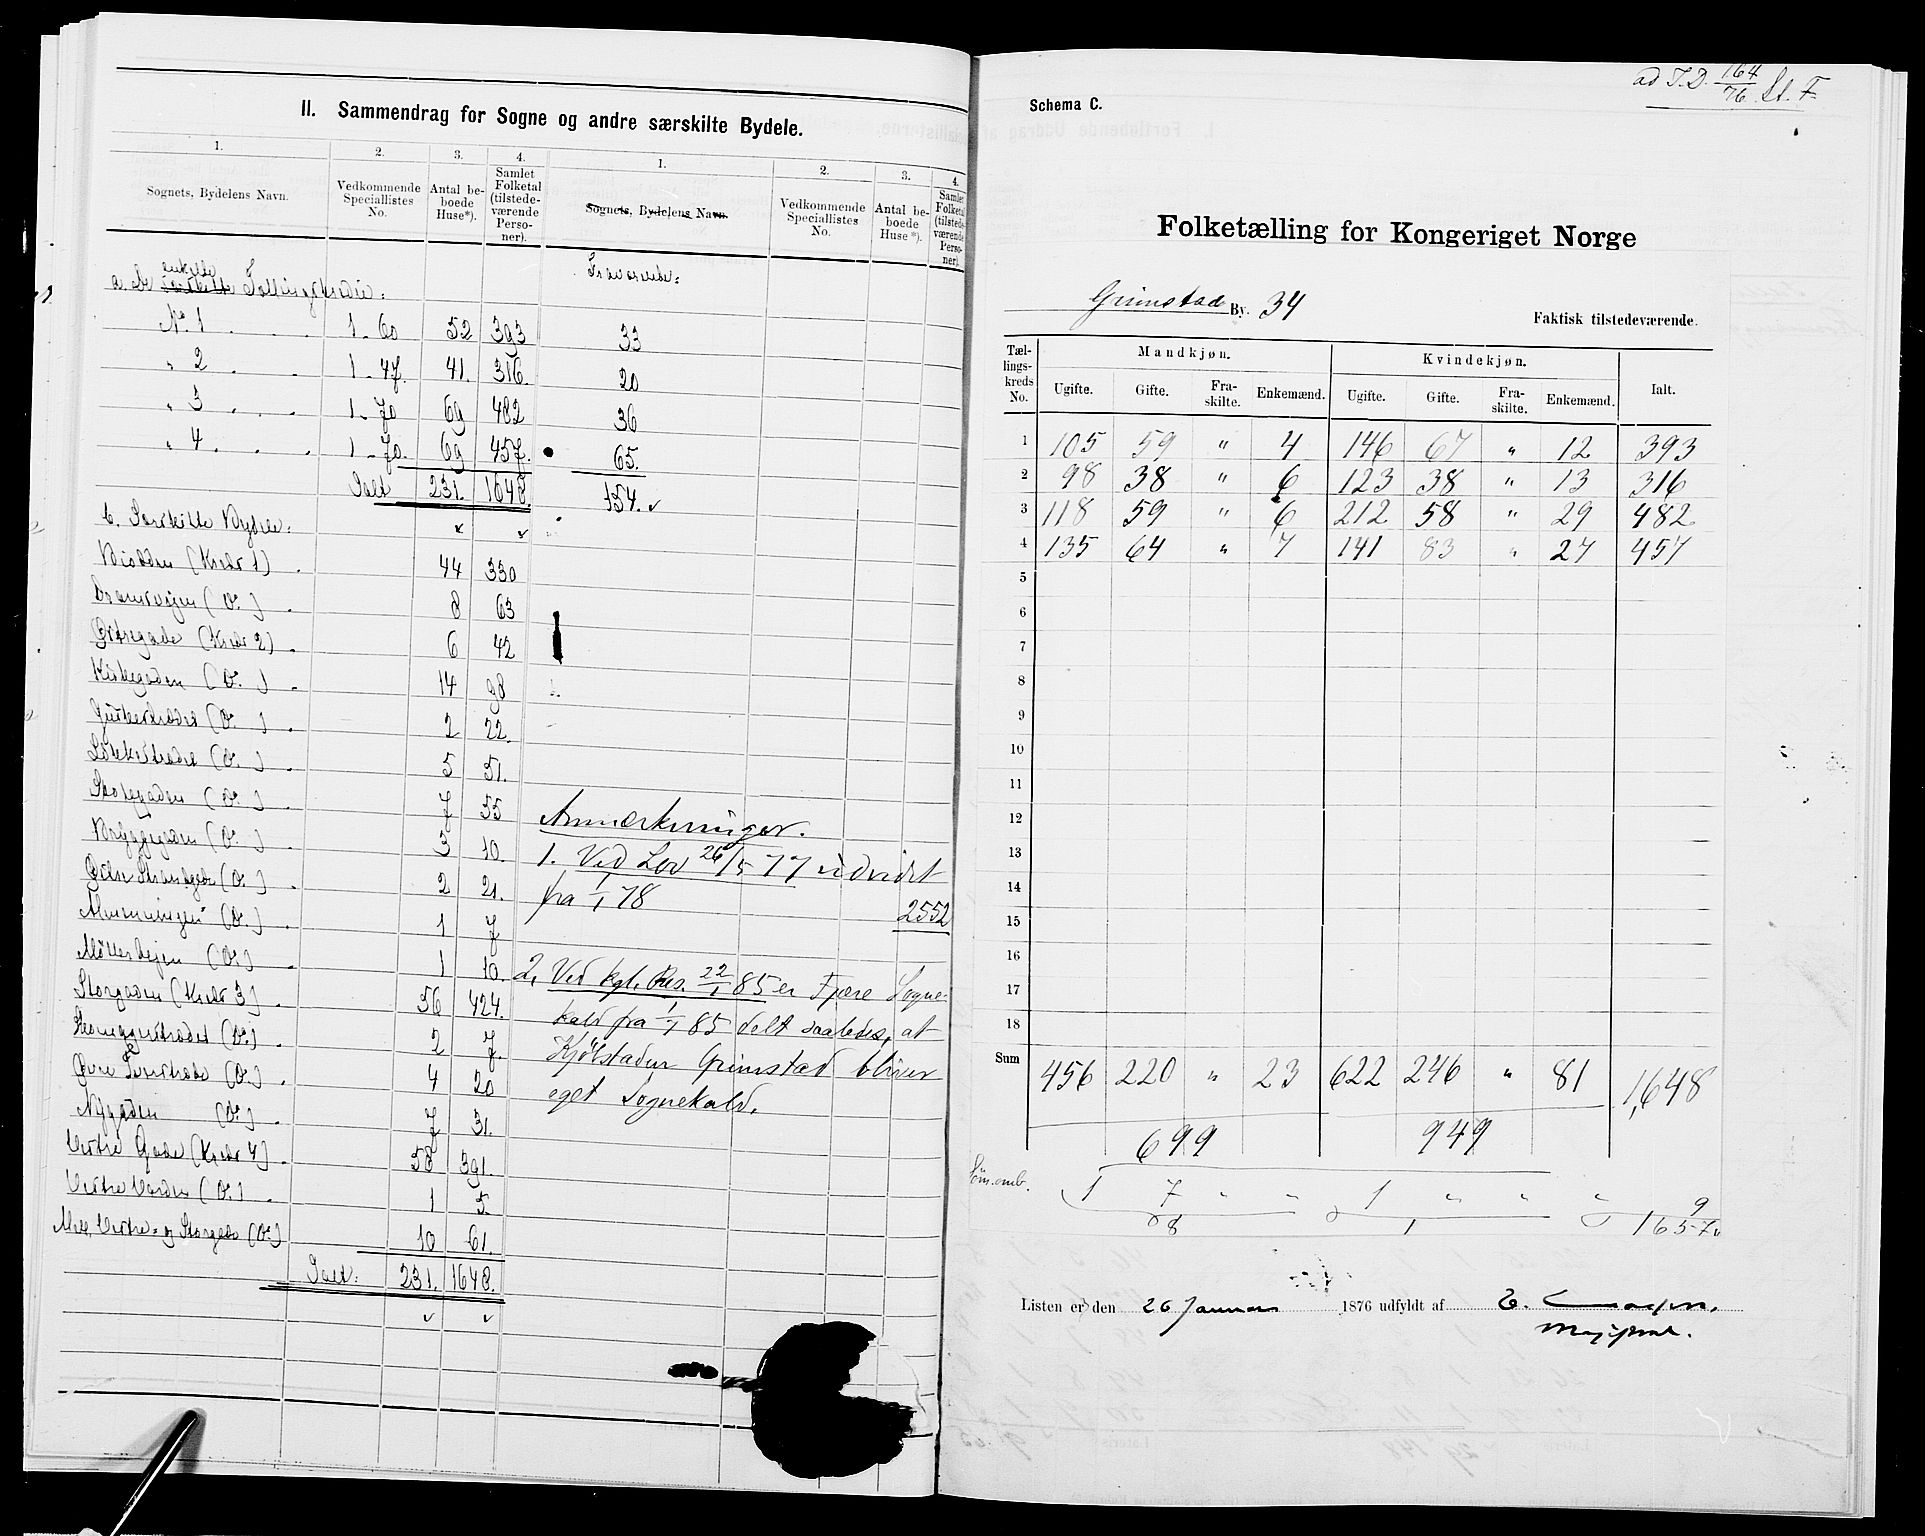 II. Sammendrag for Sogne og andre særskilte Bydele.
1. 2. 3. 4. 1. 2. 3. 4.
Sognets, Bydelens Navn. Vedkommende Speciallistes No. Antal beboede Huse*). Samlet Folketal (tilstedeværende Personer). Sognets, Bydelens Navn. Vedkommende Speciallistes No. Antal beboede Huse*). Samlet Folketal (tilstedeværende Personer).
a. De enkelte Tællingskredse: Fraværende:
No. 1 1-60 52 393 33
" 2 1-47. 41. 316. 20
" 3 1-70 69 482 36
" 4 1-70. 69 457. 65.
Ialt 231. 1648. 154.
b. Særskilte Bydele:
(Kreds 1) 44 330
(Do.) 8 63
(Kreds 2) 6 42
Kirkegaden (Do.) 14 98
(Do.) 2 22.
(Do.) 5 31.
Skolegaden (Do.) 7 55
Bryggegaden (Do.) 3 10.
(Do.) 2 21.
(Do.) 1 7
(Do.) 1 10.
Storgaden (Kreds 3) 56 424.
(Do.) 2 7.
Øvre (Do.) 4 20
Nygaden (Do.) 7 31.
Vestre Gade (Kreds 4) 58 391.
Vestre (Do.) 1 5
Mel. Vestre- og Storgade (Do.) 10 61.
Ialt: 231. 1648.
Anmærkninger.
1. Ved Lov 26/5 77 udvidet
fra 1/1 78 2552
2. Ved kgl. Res. 22/1 85 er Fjære Sogne-
kald fra 1/1 85 delt saaledes, at
Kjøbstaden Grimstad bliver
eget Sognekald.
ad T.D. 164/76 St. F.
Schema C.
Folketælling for Kongeriget Norge
Grimstad By. 34
Faktisk tilstedeværende.
Tællingskreds No. Mandkjøn. Kvindekjøn. Ialt.
Ugifte. Gifte. Fraskilte. Enkemænd. Ugifte. Gifte. Fraskilte. Enkemænd.
1 105 59 " 4 146 67 " 12 393
2 98 38 " 6 123 38 " 13 316
3 118 59 " 6 212 58 " 29 482
4 135 64 " 7 141 83 " 27 457
5
6
7
8
9
10
11
12
13
14
15
16
17
18
Sum 456 220 " 23 622 246 " 81 1,648
699 949
1 7 " " 1 " " " 9
8 1 1657
Listen er den 26 Januar 1876 udfyldt af
Magistrat.